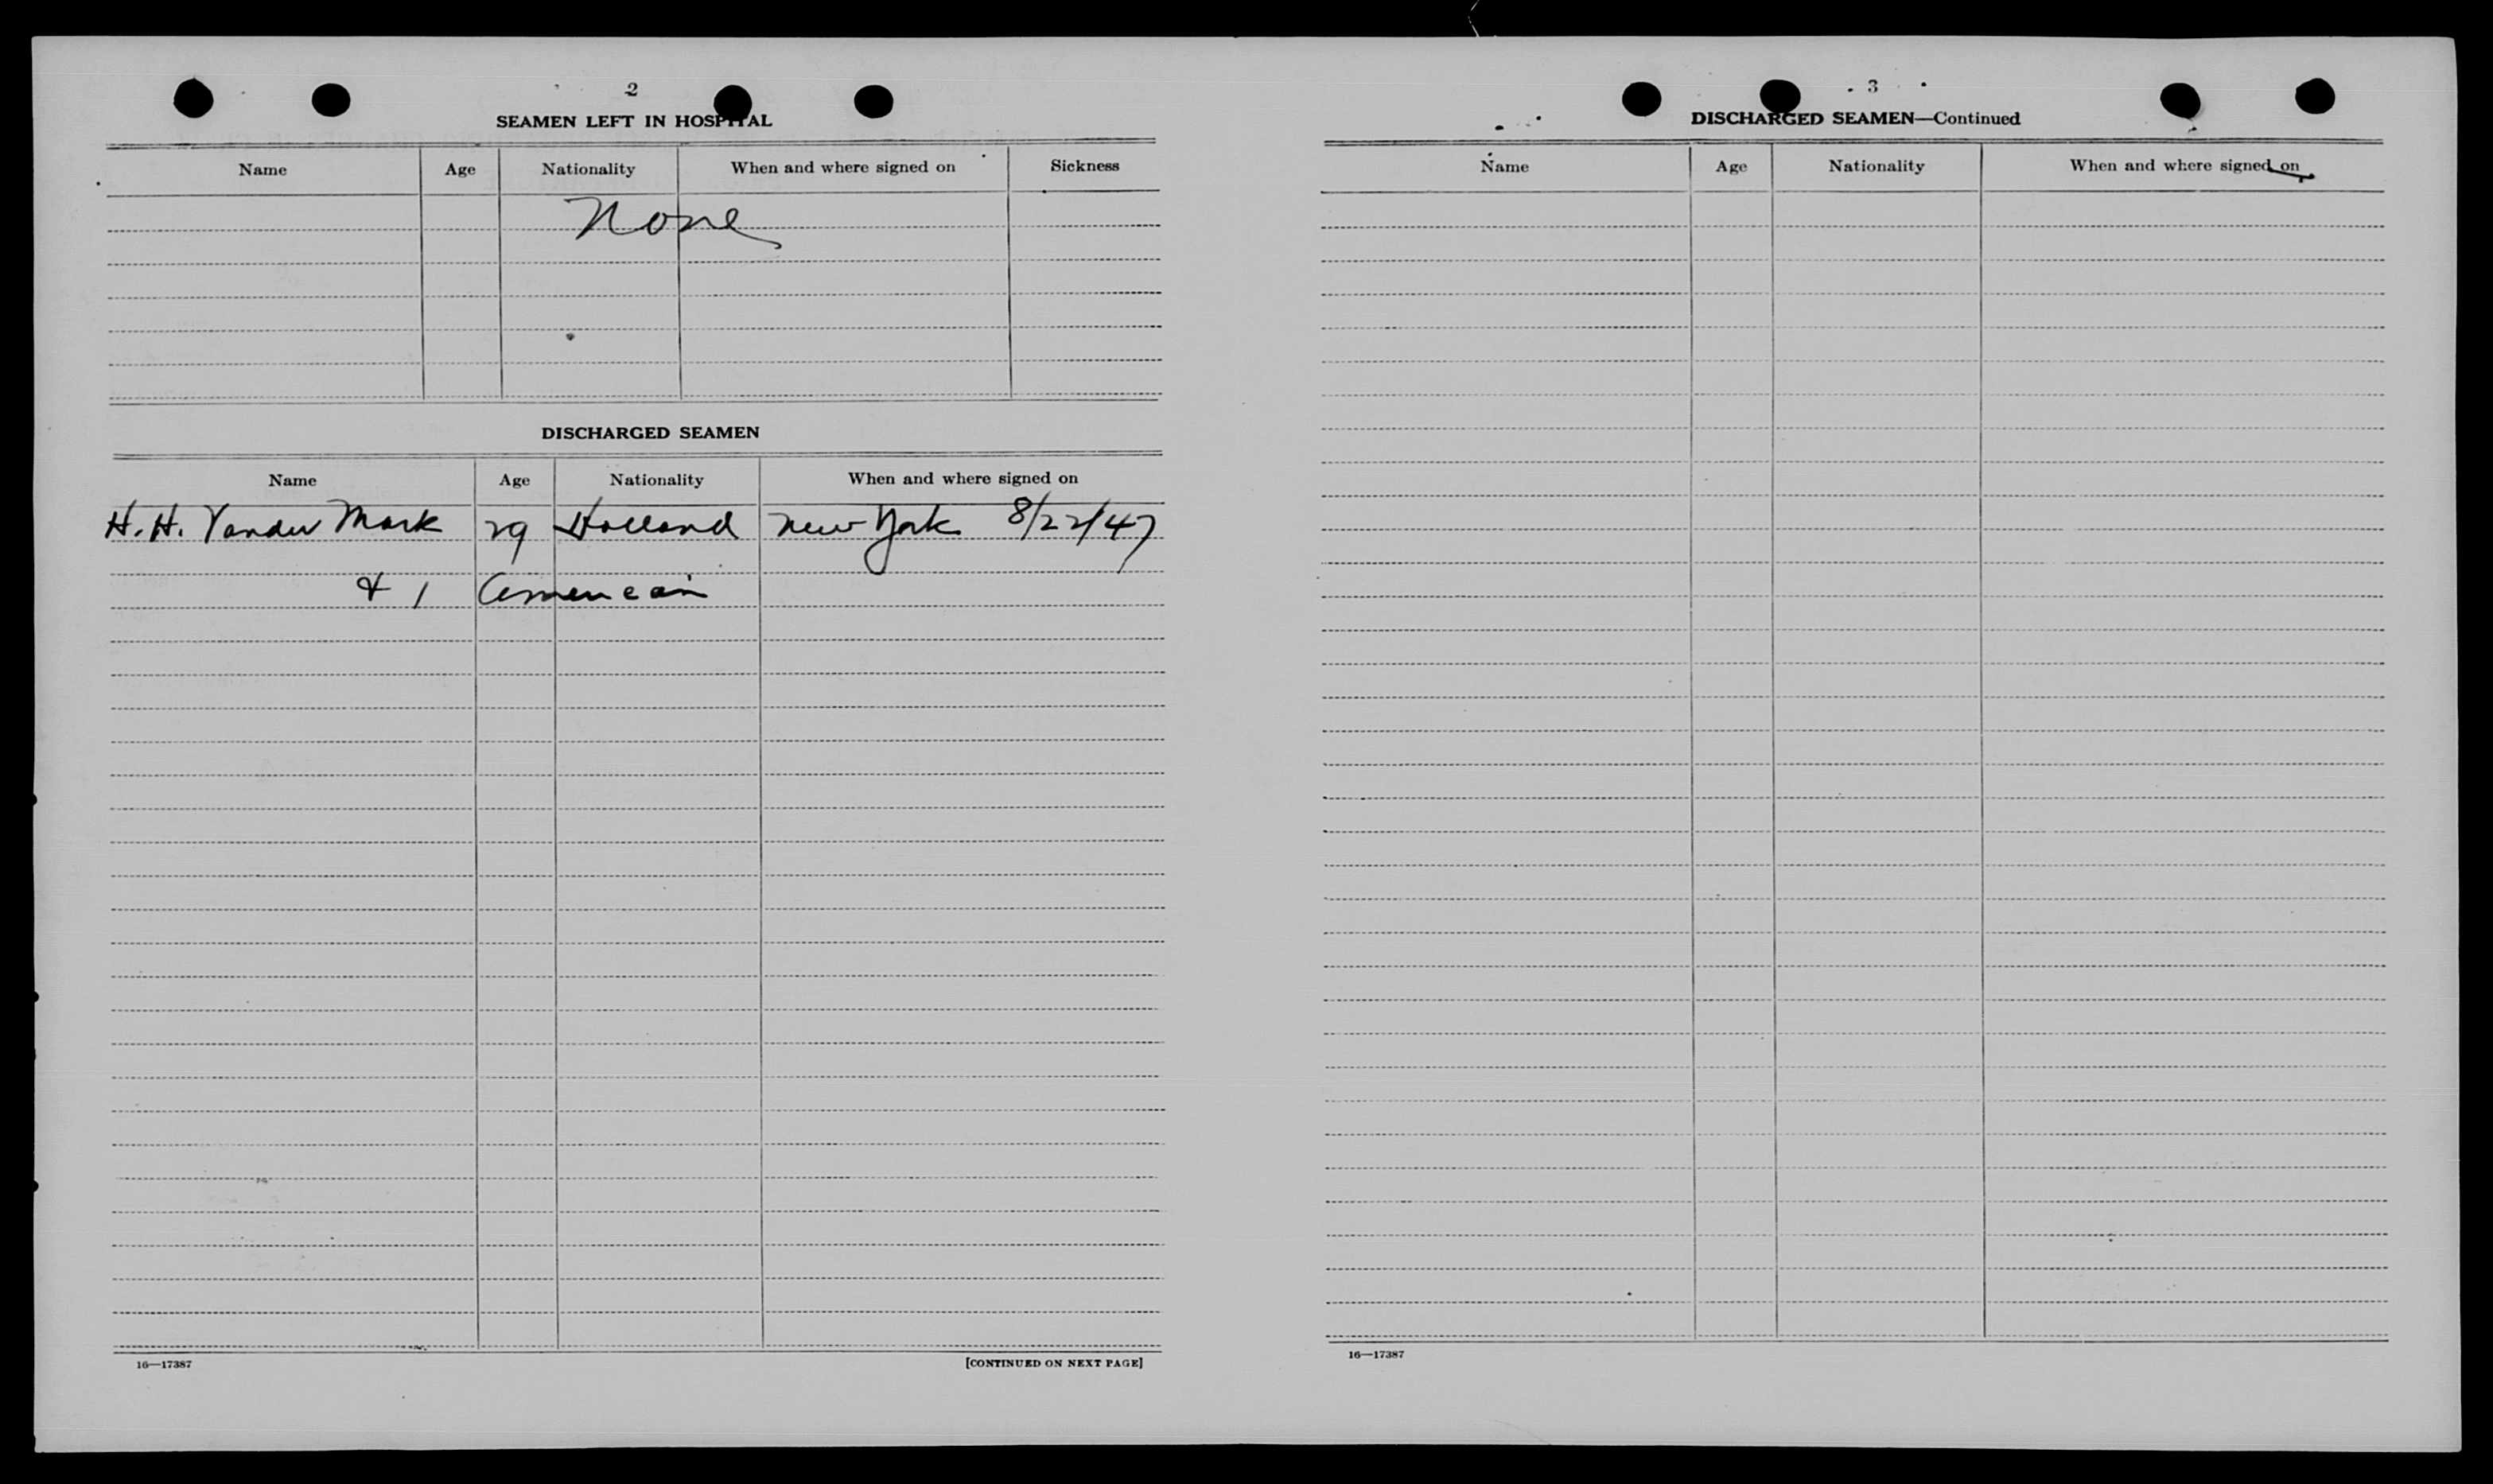 2
SEAMEN LEFT IN HOSPITAL
Name Age Nationality When and where signed on Sickness
None
DISCHARGED SEAMEN
Name Age Nationality When and where signed on
H. H. Vander Mark 29 Holland New York 8/22/47
& 1 American
16—17387 [CONTINUED ON NEXT PAGE]
3
DISCHARGED SEAMEN—Continued
Name Age Nationality When and where signed on
16—17387